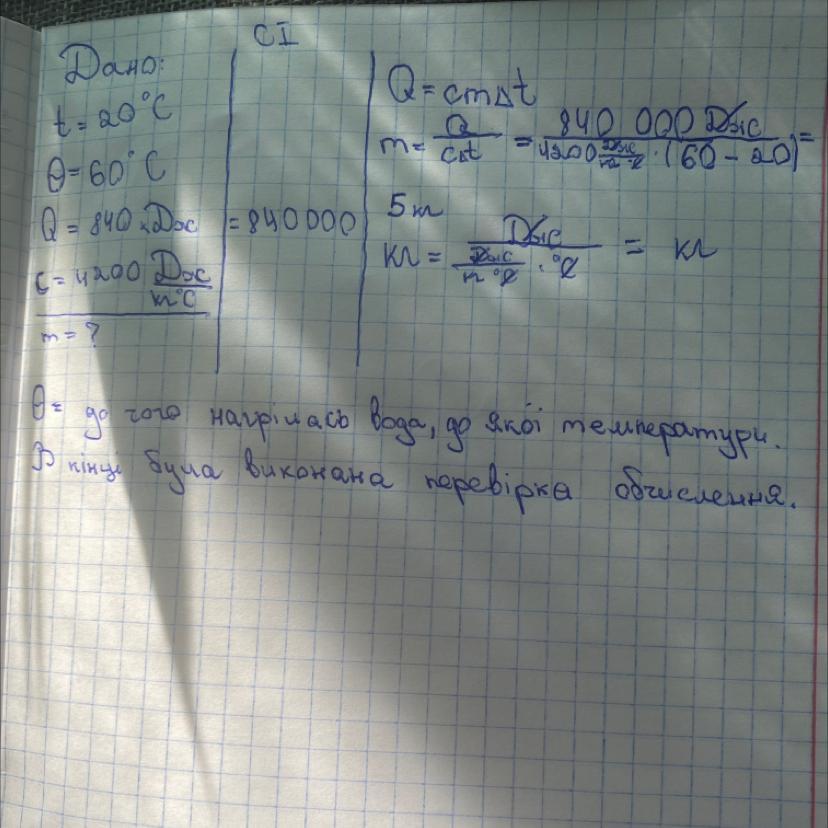 СІ
Дано:
t = 20°C
θ = 60°C
Q = 840 кДж = 840 000
c = 4200 Дж/кг°C
m = ?
Q = cmΔt
m = Q/cΔt = 840 000 Дж / 4200 Дж/кг·°C · (60 - 20) =
5 кг
кг = Дж / Дж/кг°C · °C = кг
θ = до чого нагрілась вода, до якої температури.
В кінці була виконана перевірка обчислення.